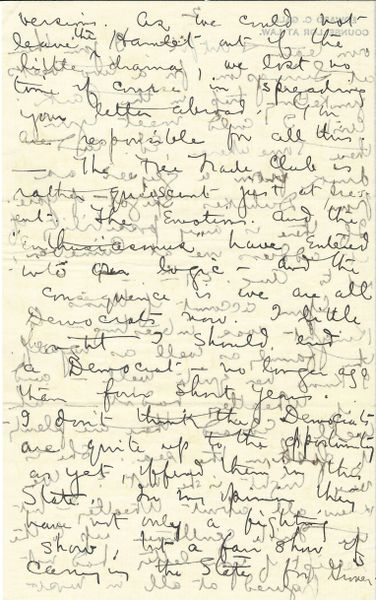 version. As we could not
leave the Hamlet out of the
little drama, we lost no
time of course in spreading
your letter abroad. You
are responsible for all this.
— The Free Trade Club is
rather quiescent just at pres-
ent. The Emotion and the
"Enthusiasmus" have entered
into our logic — and the
consequence is we are all
Democrats now. I little
thought I should end
a Democrat — no longer ago
than four short years.
I don't think the Democrats
are quite up to the opportunity
as yet, of them in this
State. In my opinion they
have not only a fighting
show, but a fair show of
carrying the State for Grover